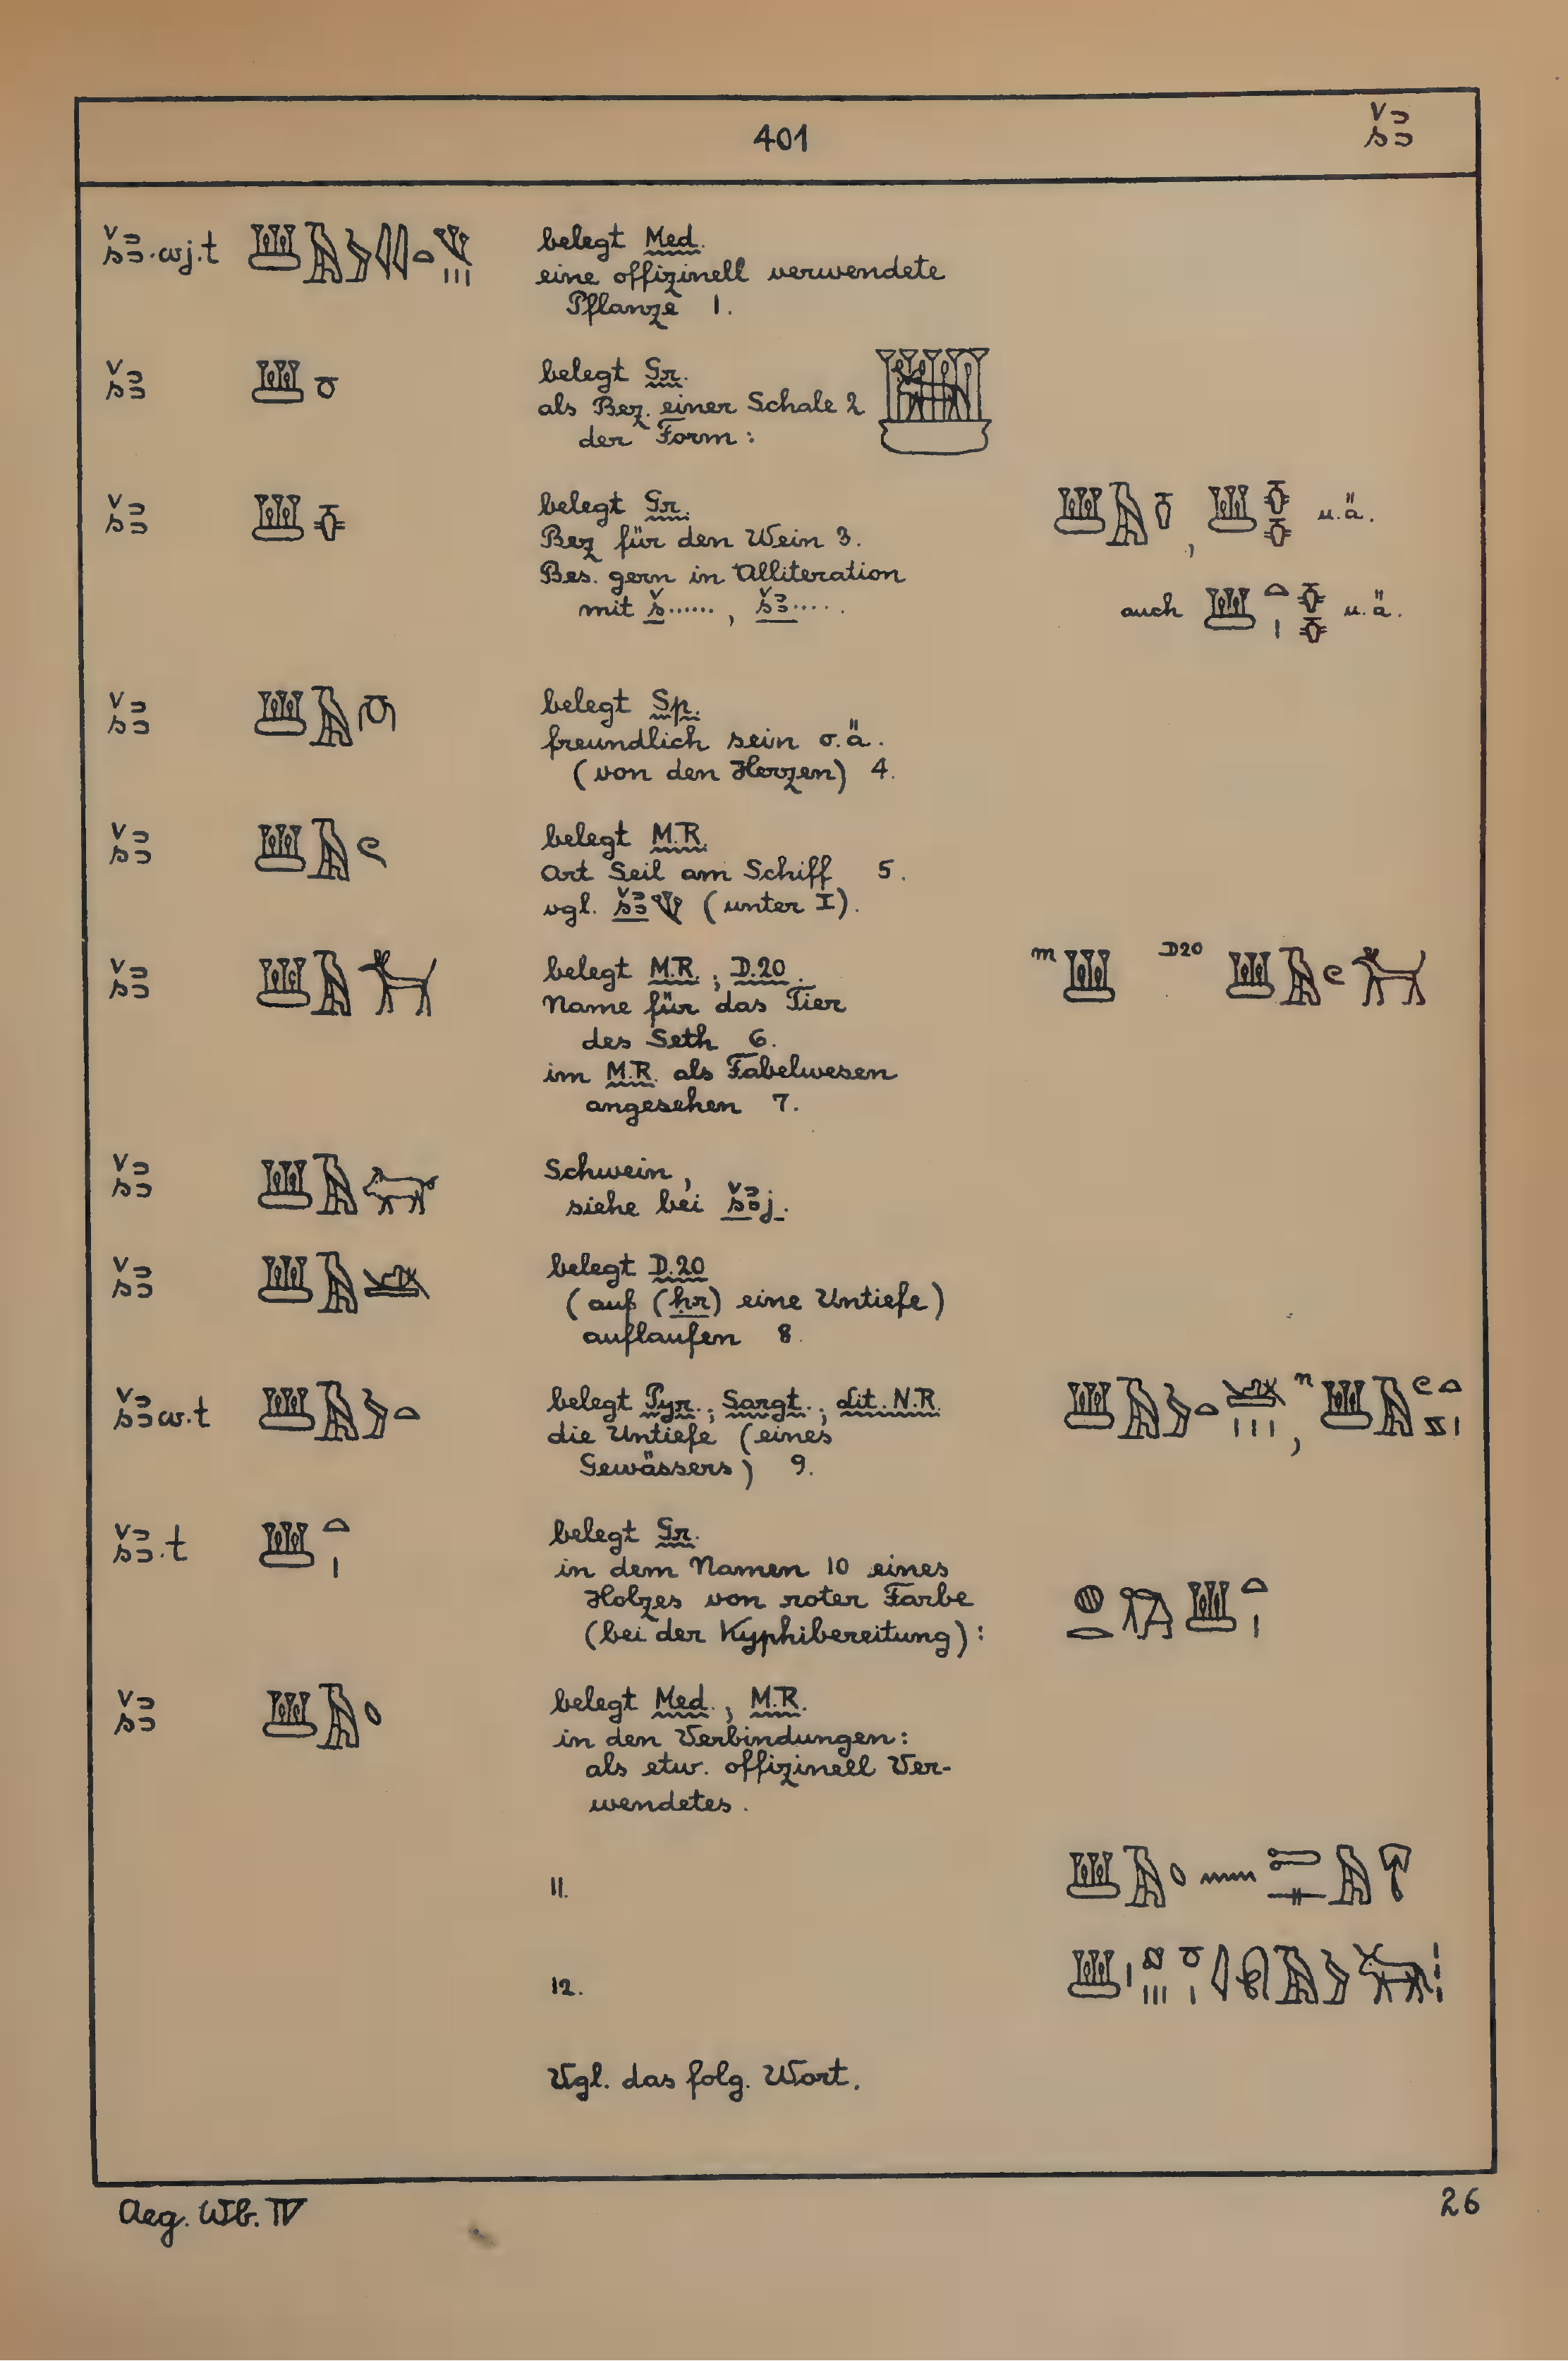 401
šꜣ
šꜣ.wj.t 𓆷𓄿𓅱𓇋𓇋𓏏𓆰𓏥 belegt Med.
eine offizinell verwendete
Pflanze 1.
šꜣ 𓆷𓏌 belegt Gr.
als Bez. einer Schale 2
der Form:
šꜣ 𓆷 belegt Gr. 𓆷𓄿, 𓆷 u.ä.
Bez für den Wein 3.
Bes. gern in Alliteration
mit š......, šꜣ..... auch 𓆷𓏏𓏤 u.ä.
šꜣ 𓆷𓄿 belegt Sp.
freundlich sein o.ä.
(von den Herzen) 4.
šꜣ 𓆷𓄿𓏲 belegt M.R.
Art Seil am Schiff 5.
vgl. šꜣ𓆰 (unter I).
šꜣ 𓆷𓄿𓃩 belegt M.R.; D.20. m 𓆷 D20 𓆷𓄿𓏲𓃩
Name für das Tier
des Seth 6.
im M.R. als Fabelwesen
angesehen 7.
šꜣ 𓆷𓄿𓃟 Schwein,
siehe bei šꜣj.
šꜣ 𓆷𓄿 belegt D.20
(auf (ḥr) eine Untiefe)
auflaufen 8.
šꜣw.t 𓆷𓄿𓅱𓏏 belegt Pyr.; Sargt.; Lit. N.R. 𓆷𓄿𓅱𓏏𓏥 , n 𓆷𓄿𓏲𓏏𓈇𓏤
die Untiefe (eines
Gewässers) 9.
šꜣ.t 𓆷𓏏𓏤 belegt Gr.
in dem Namen 10 eines
Holzes von roter Farbe 𓐍𓂋𓆷𓏏𓏤
(bei der Kyphibereitung):
šꜣ 𓆷𓄿𓈒 belegt Med., M.R.
in den Verbindungen:
als etw. offizinell Ver-
wendetes.
11. 𓆷𓄿𓈒𓈖𓍿𓊃𓄿
12. 𓆷𓏤𓏥𓏌𓏤𓇋𓄿𓅱𓃒𓏥
Vgl. das folg. Wort.
Aeg. Wb. IV 26